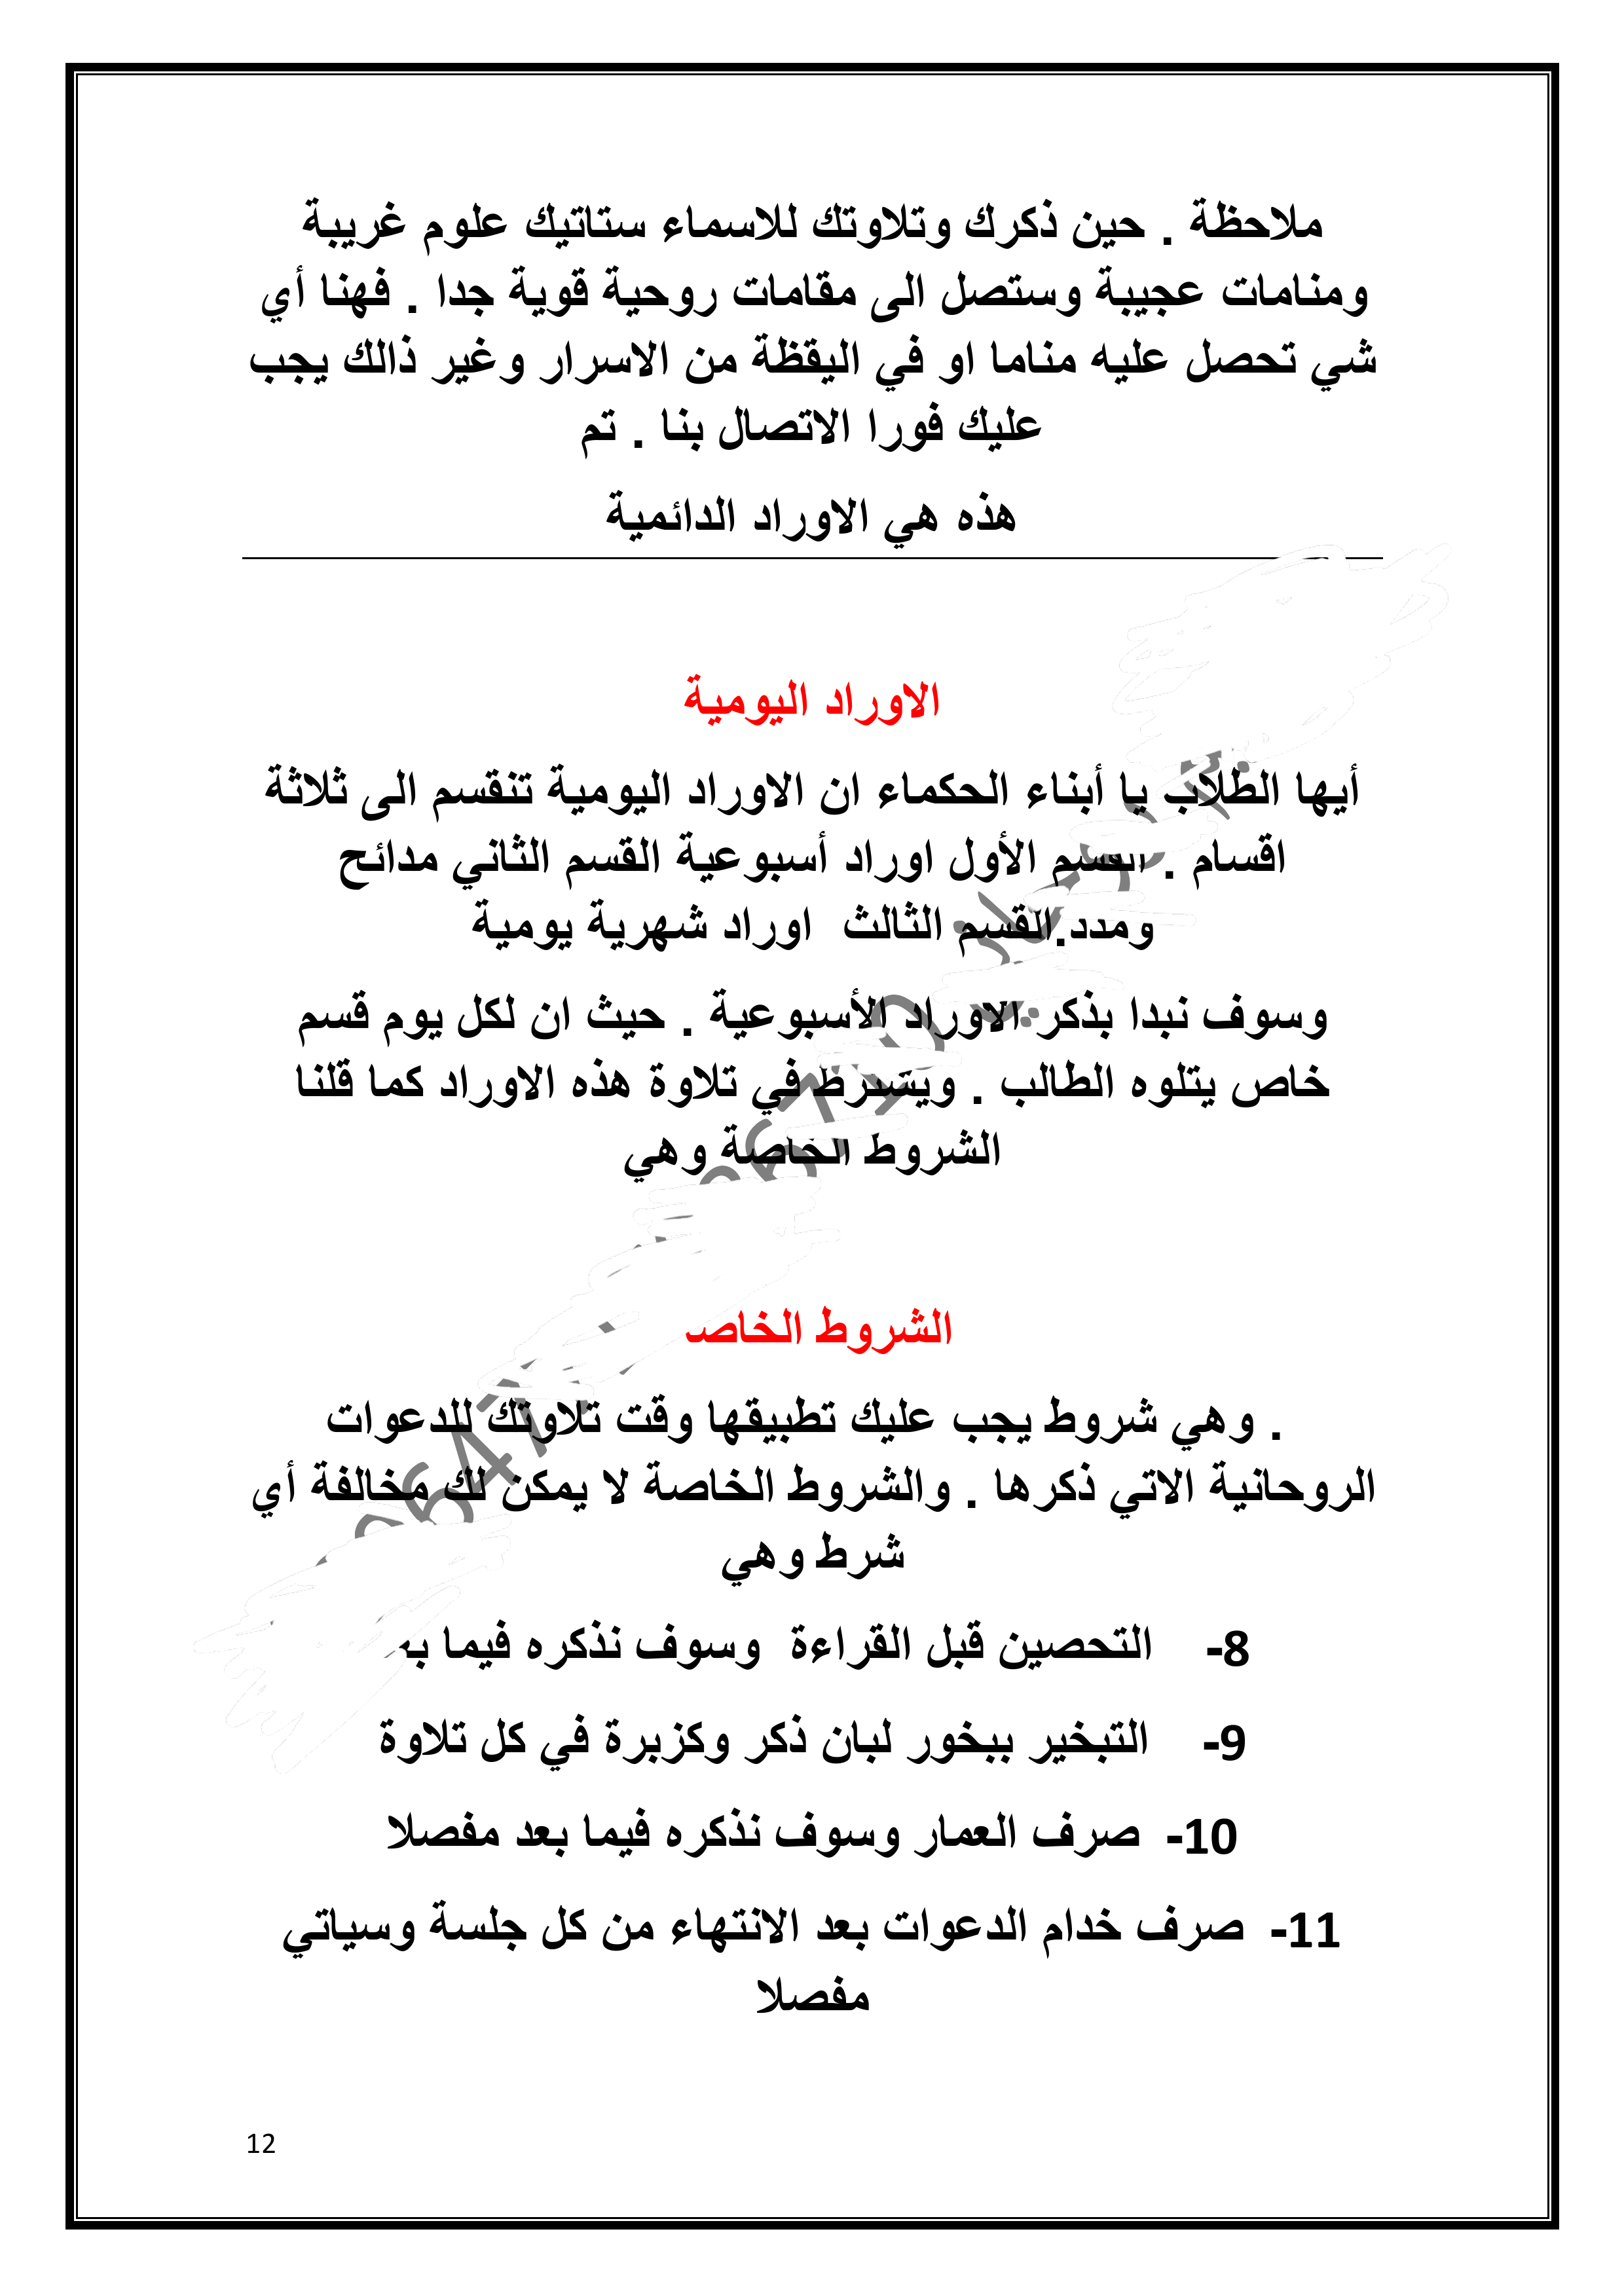 ملاحظة . حين ذكرك وتلاوتك للاسماء ستاتيك علوم غريبة
ومنامات عجيبة وستصل الى مقامات روحية قوية جدا . فهنا أي
شي تحصل عليه مناما او في اليقظة من الاسرار وغير ذالك يجب
عليك فورا الاتصال بنا . تم
هذه هي الاوراد الدائمية
الاوراد اليومية
أيها الطلاب يا أبناء الحكماء ان الاوراد اليومية تنقسم الى ثلاثة
اقسام . القسم الأول اوراد أسبوعية القسم الثاني مدائح
ومدد.القسم الثالث اوراد شهرية يومية
وسوف نبدا بذكر الاوراد الأسبوعية . حيث ان لكل يوم قسم
خاص يتلوه الطالب . ويشترط في تلاوة هذه الاوراد كما قلنا
الشروط الخاصة وهي
الشروط الخاصـ
. وهي شروط يجب عليك تطبيقها وقت تلاوتك للدعوات
الروحانية الاتي ذكرها . والشروط الخاصة لا يمكن لك مخالفة أي
شرط وهي
8- التحصين قبل القراءة وسوف نذكره فيما
9- التبخير ببخور لبان ذكر وكزبرة في كل تلاوة
10- صرف العمار وسوف نذكره فيما بعد مفصلا
11- صرف خدام الدعوات بعد الانتهاء من كل جلسة وسياتي
مفصلا
12